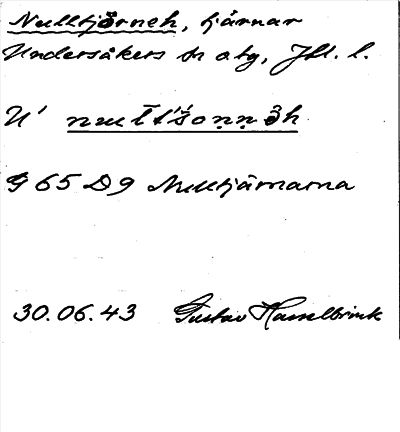 Nulltjörneh, tjärnar
Undersåkers sn o tg, Jtl. l.
U'
G 65 D9 Nulltjärnarna
30.06.43 Gustav Hasselbrink